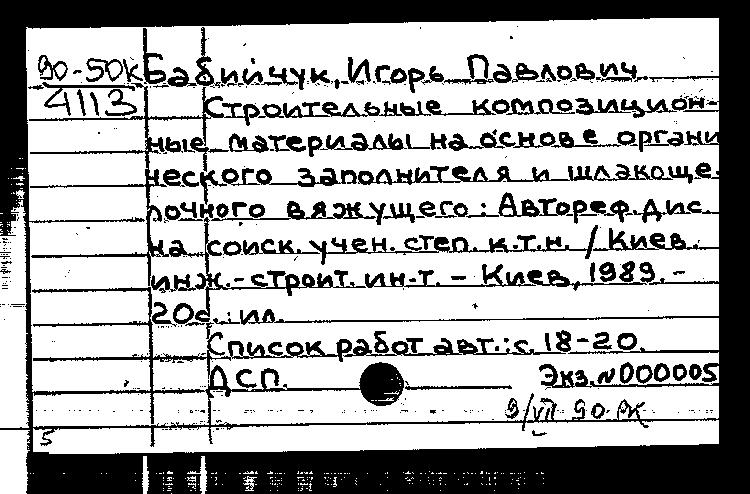 90-50К Бабийчук, Игорь Павлович
4113 Строительные композицион-
ные материалы на основе органи
ческого заполнителя и шлакоще-
лочного вяжущего: Автореф. дис.
на соиск. учен. степ. к.т.н. / Киев.
инж.-строит. ин-т. – Киев, 1989. –
20с.: ил.
Список работ авт.: с. 18-20.
ДСП. Экз. N000005
9/VII 90 РК
5